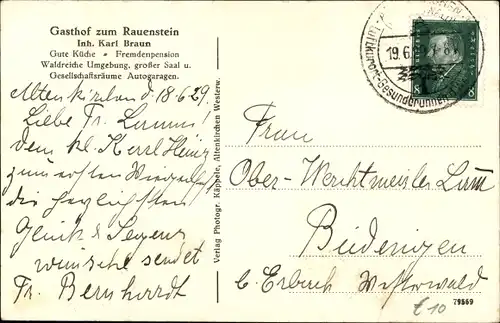 Gasthof zum Rauenstein
Inh. Karl Braun
Gute Küche • Fremdenpension
Waldreiche Umgebung, großer Saal u.
Gesellschaftsräume Autogaragen.
Altenkirchen d 18.6.29.
Liebe Fr.
Dem kl. Kerl Heinz
zum ersten
die herzlichsten
Glück & Segens
wünsche sendet
Fr. Bernhardt
Verlag Photogr. Käppele, Altenkirchen Westerw.
19.6.29
Luftkurort-Gesundbrunnen
8 8
Frau
Ober-Werkmeister
Büdingen
b. Erbach Westerwald
79569
£10